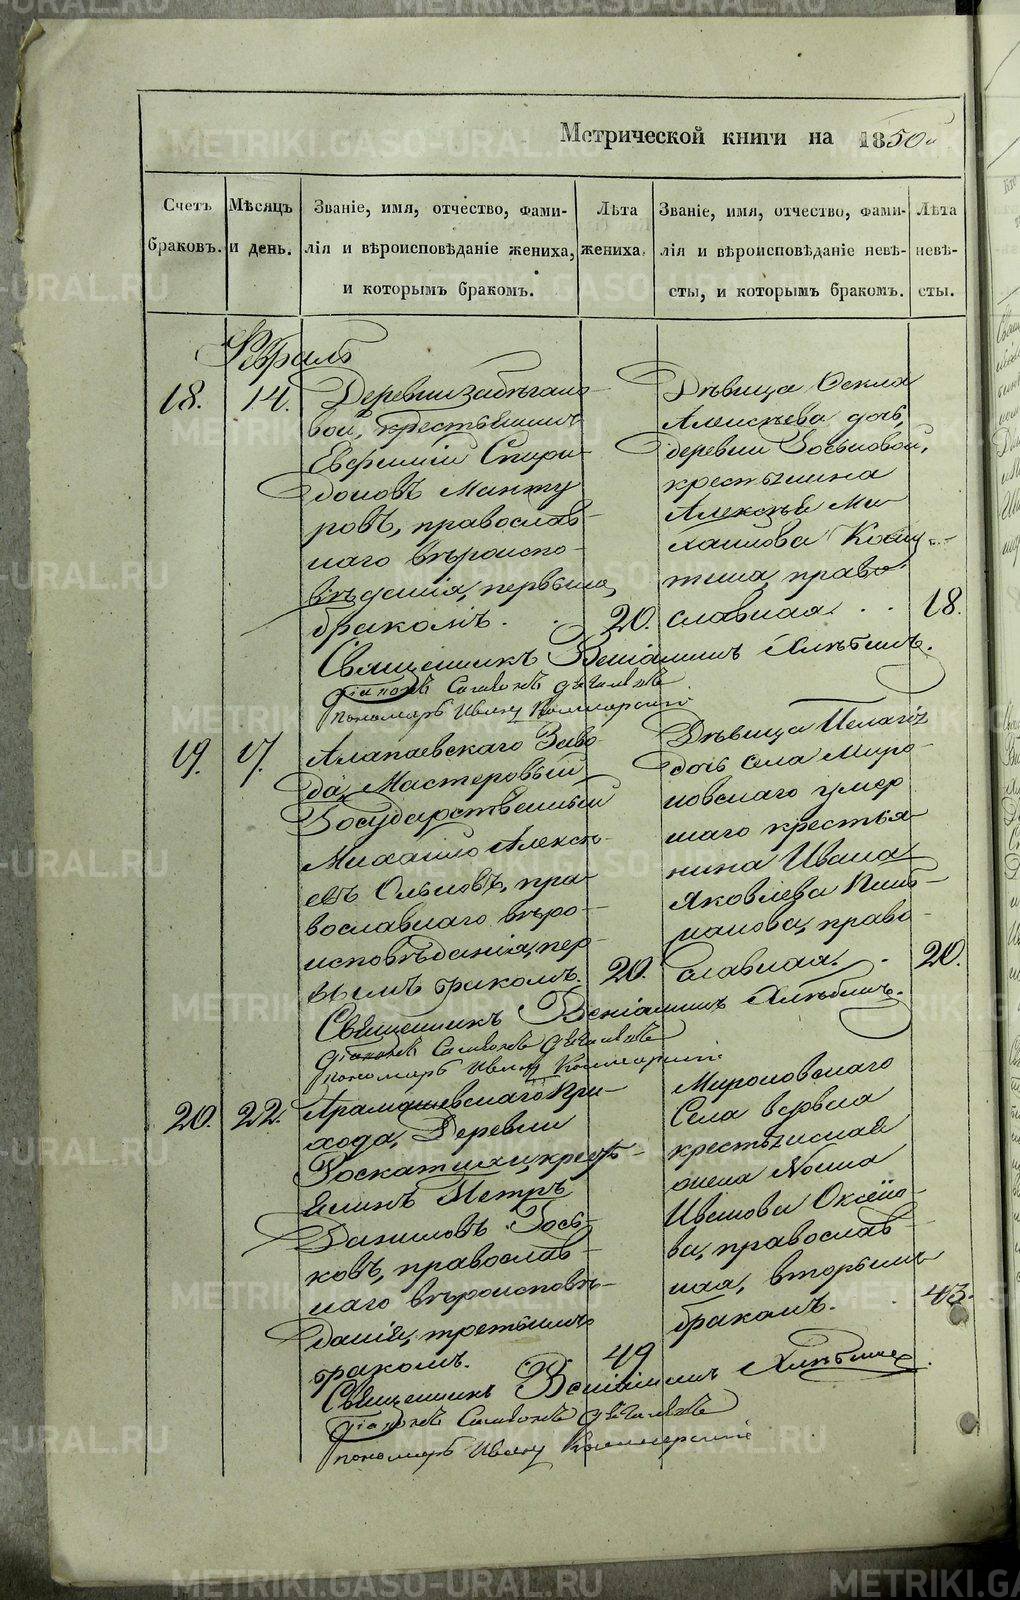 Метрической книги на 1850й
Счетъ браковъ.
Мѣсяцъ и день.
Званіе, имя, отчество, фами-
лія и вѣроисповѣданіе жениха,
и которымъ бракомъ.
Лѣта жениха.
Званіе, имя, отчество, фами-
лія и вѣроисповѣданіе невѣ-
сты, и которымъ бракомъ.
Лѣта невѣ-
сты.
Февраль
18.
14.
Деревни Забѣгало-
вой, крестьянинъ
Евфимій Спири-
доновъ Манту
ровъ, православ-
наго вѣроиспо-
вѣданія, первымъ
бракомъ.
20.
Дѣвица Фекла
Алексѣева дочь,
деревни Зоськовой,
крестьянина
Алексѣя Ми-
хаилова
право-
славная.
18.
Священникъ Веніаминъ
Діаконъ
пономарь Иванъ
19.
17.
Алапаевскаго Заво-
да, Мастеровый
Государственный
Михаило Алексѣ-
евъ Ольковъ, пра-
вославнаго вѣро-
исповѣданія, пер-
вымъ бракомъ.
20.
Дѣвица Пелагія
дочь села Миро-
новскаго умер
шаго крестья-
нина Ивана
Яковлева
право-
славная.
20.
Священникъ Веніаминъ
Діаконъ
пономарь Иванъ
20.
22.
Арамашевскаго При-
хода, Деревни
Роскатихи, кресть-
янинъ Петръ
Даниловъ Зось-
ковъ, православ-
наго вѣроисповѣ-
данія, третьимъ
бракомъ.
49
Мироновскаго
Села вдовая
крестьянская
жена Нонна
Иванова Оксёно-
ва, православ-
ная, вторымъ
бракомъ.
43.
Священникъ Веніаминъ
Діаконъ
пономарь Иванъ
METRIKI.GASO-URAL.RU